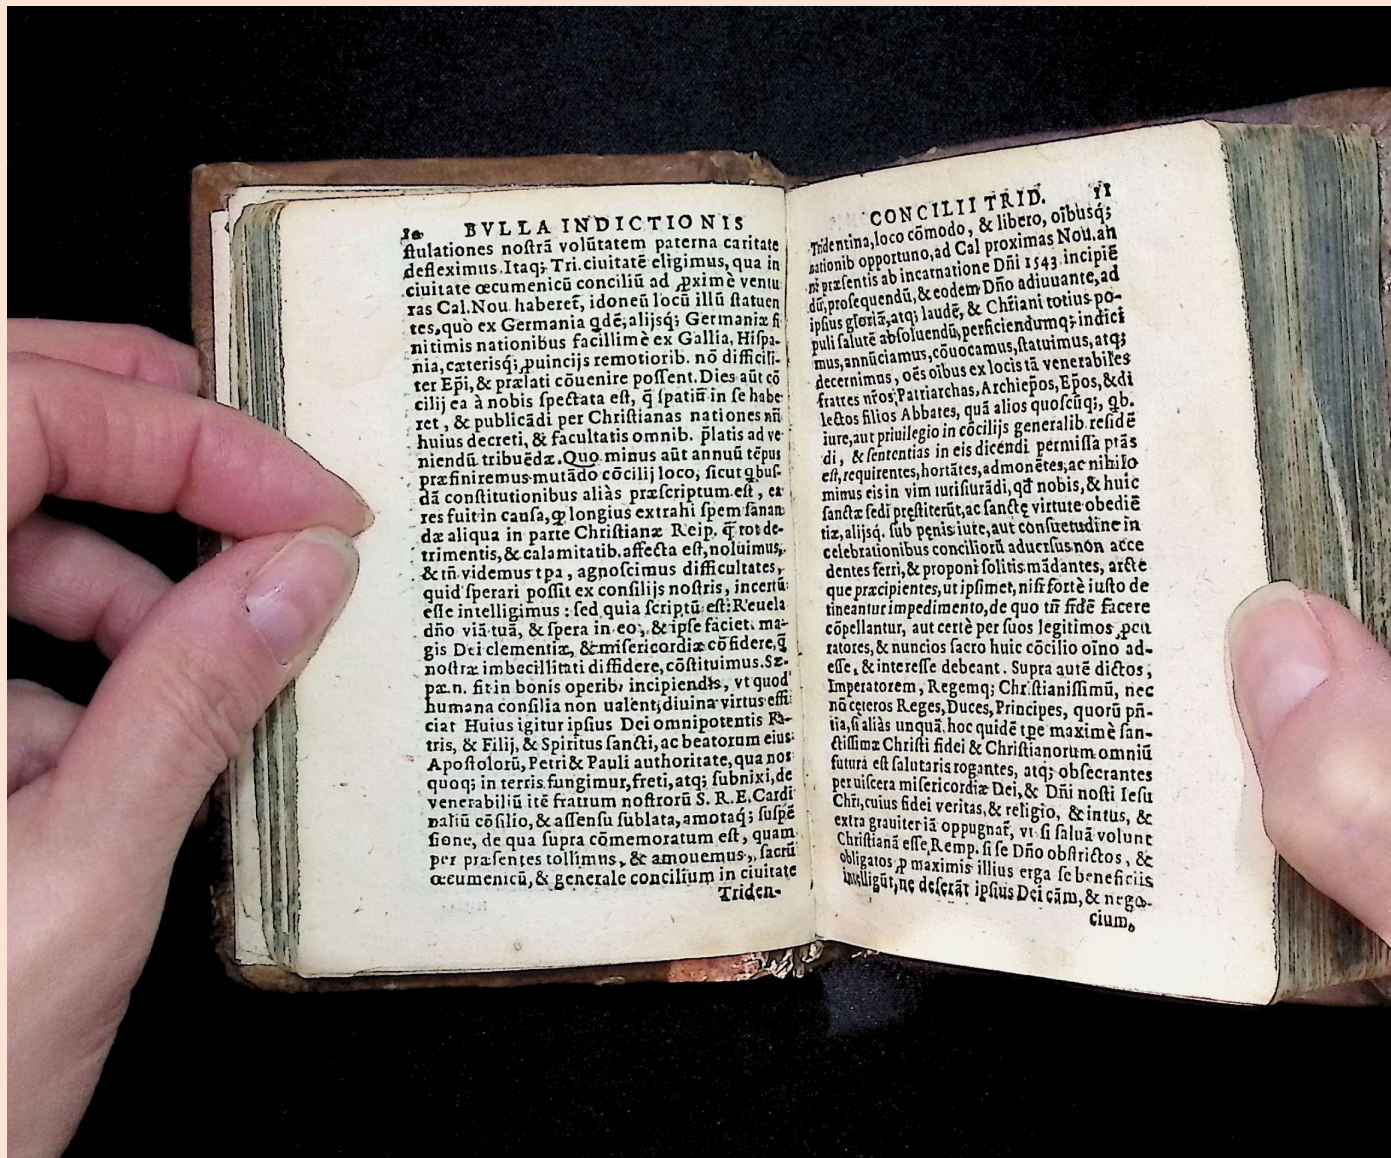 10 BVLLA INDICTIONIS
ſtulationes noſtrã volũtatem paterna caritate
defleximus. Itaq; Tri. ciuitatẽ eligimus, qua in
ciuitate œcumenicũ conciliũ ad ꝓximè ventu
ras Cal. Nou. haberet̃, idoneũ locũ illũ ſtatuen
tes, quò ex Germania qdẽ, alijsq; Germaniæ fi
nitimis nationibus facillimè ex Gallia, Hiſpa-
nia, cæterisq; ꝓuincijs remotiorib. nõ difficili-
ter Ep̃i, & prælati cõuenire poſſent. Dies aũt cõ
cilij ea à nobis ſpectata eſt, q̃ ſpatiũ in ſe habe
ret, & publicãdi per Chriſtianas nationes nr̃i
huius decreti, & facultatis omnib. p̃latis ad ve-
niendũ tribuẽdæ. Quo minus aũt annuũ tẽpus
præfiniremus mutãdo cõcilij loco, ſicut qbuſ-
dã conſtitutionibus aliàs præſcriptum eſt, ea
res fuit in cauſa, ꝙ longius extrahi ſpem ſanan
dæ aliqua in parte Chriſtianæ Reip. q̃ tot de-
trimentis, & calamitatib. affecta eſt, noluimus,
& tñ videmus tpa, agnoſcimus difficultates,
quid ſperari poſſit ex conſilijs noſtris, incertũ
eſſe intelligimus: ſed quia ſcriptũ eſt: Reuela
dño viã tuã, & ſpera in eo, & ipſe faciet. ma-
gis Dei clementiæ, & miſericordiæ cõfidere, q̃
noſtræ imbecillitati diffidere, cõſtituimus. Sæ-
pæ.n. fit in bonis operib, incipiendis, vt quod
humana conſilia non ualent, diuina virtus effi
ciat Huius igitur ipſius Dei omnipotentis Pa-
tris, & Filij, & Spiritus ſancti, ac beatorum eius
Apoſtolorũ, Petri & Pauli authoritate, qua nos
quoq; in terris fungimur, freti, atq; ſubnixi, de
venerabiliũ itẽ fratrum noſtrorũ S. R. E. Cardi
naliũ cõſilio, & aſſenſu ſublata, amotaq; ſuſpẽ
ſione, de qua ſupra cõmemoratum eſt, quam
per præſentes tollimus, & amouemus, ſacrũ
œcumenicũ, & generale concilium in ciuitate
Triden-
CONCILII TRID. 11
Tridentina, loco cõmodo, & libero, oĩbusq;
nationib opportuno, ad Cal proximas Nou. an
ni præſentis ab incarnatione Dñi 1543 incipiẽ
dũ, proſequendũ, & eodem Dño adiuuante, ad
ipſius gloriã, atq; laudẽ, & Chr̃iani totius po-
puli ſalutẽ abſoluendũ, perficiendumq; indici
mus, annũciamus, cõuocamus, ſtatuimus, atq;
decernimus, oẽs oĩbus ex locis tã venerabiles
fratres nr̃os Patriarchas, Archiep̃os, Ep̃os, & di
lectos filios Abbates, quã alios quoſcũq;, qb.
iure, aut priuilegio in cõcilijs generalib. reſidẽ
di, & ſententias in eis dicendi permiſſa ptãs
eſt, requirentes, hortãtes, admonẽtes, ac nihilo
minus eis in vim iurisiurãdi, qđ nobis, & huic
ſanctæ ſedi pręſtiterũt, ac ſanctę virtute obediẽ
tiæ, alijsq. ſub penis iure, aut conſuetudine in
celebrationibus conciliorũ aduerſus non acce
dentes ferri, & proponi ſolitis mãdantes, arcte
que præcipientes, ut ipſimet, niſi fortè iuſto de
tineantur impedimento, de quo tñ fidẽ facere
cõpellantur, aut certè per ſuos legitimos ꝓcu
ratores, & nuncios ſacro huic cõcilio oĩno ad-
eſſe, & intereſſe debeant. Supra autẽ dictos,
Imperatorem, Regemq; Chriſtianiſſimũ, nec
nõ cęteros Reges, Duces, Principes, quorũ pñ-
tia, ſi aliàs unquã, hoc quidẽ tpe maximè ſan-
ctiſſimæ Chriſti fidei & Chriſtianorum omniũ
futura eſt ſalutaris rogantes, atq; obſecrantes
per uiſcera miſericordiæ Dei, & Dñi noſti Ieſu
Chr̃i, cuius fidei veritas, & religio, & intus, &
extra grauiter iã oppugnat̃, vt ſi ſaluã volunt
Chriſtianã eſſe, Remp. ſi ſe Dño obſtrictos, &
obligatos ꝓ maximis illius erga ſe beneficiis
intelligũt, ne deſerãt ipſius Dei cãm, & nego-
cium,